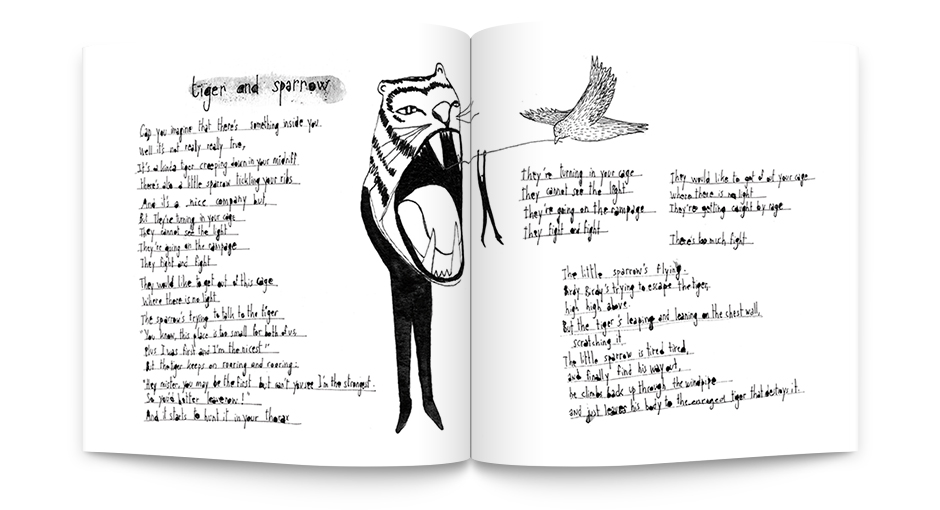 tiger and sparrow
Can you imagine that there's something inside you.
Well it's not really really true,
It's a kinda tiger creeping down in your midriff
there's also a little sparrow tickling your ribs
And it's a nice company but,
But They're turning in your cage
They cannot see the light
They're going on the rampage
They fight and fight
They would like to get out of this cage
Where there is no light
The sparrow's trying to talk to the tiger
"You know, this place is too small for both of us
Plus I was first and I'm the nicest"
But the tiger keeps on roaring and roaring:
"Hey mister, you may be the first but can't you see I'm the strongest.
So you'd better leave now!"
And it starts to hunt it in your thorax
They're turning in your cage
They cannot see the light
They're going on the rampage
They fight and fight
They would like to get out of your cage
Where there is no light
They're getting caught by rage
There's too much fight
The little sparrow's flying.
Birdy Birdy's trying to escape the tiger,
high high above.
But the tiger's leaping and leaning on the chest wall,
scratching it
The little sparrow is tired tired,
and finally find his way out,
he climbs back up through the windpipe
and just leaves his body to the enraged tiger that destroys it.